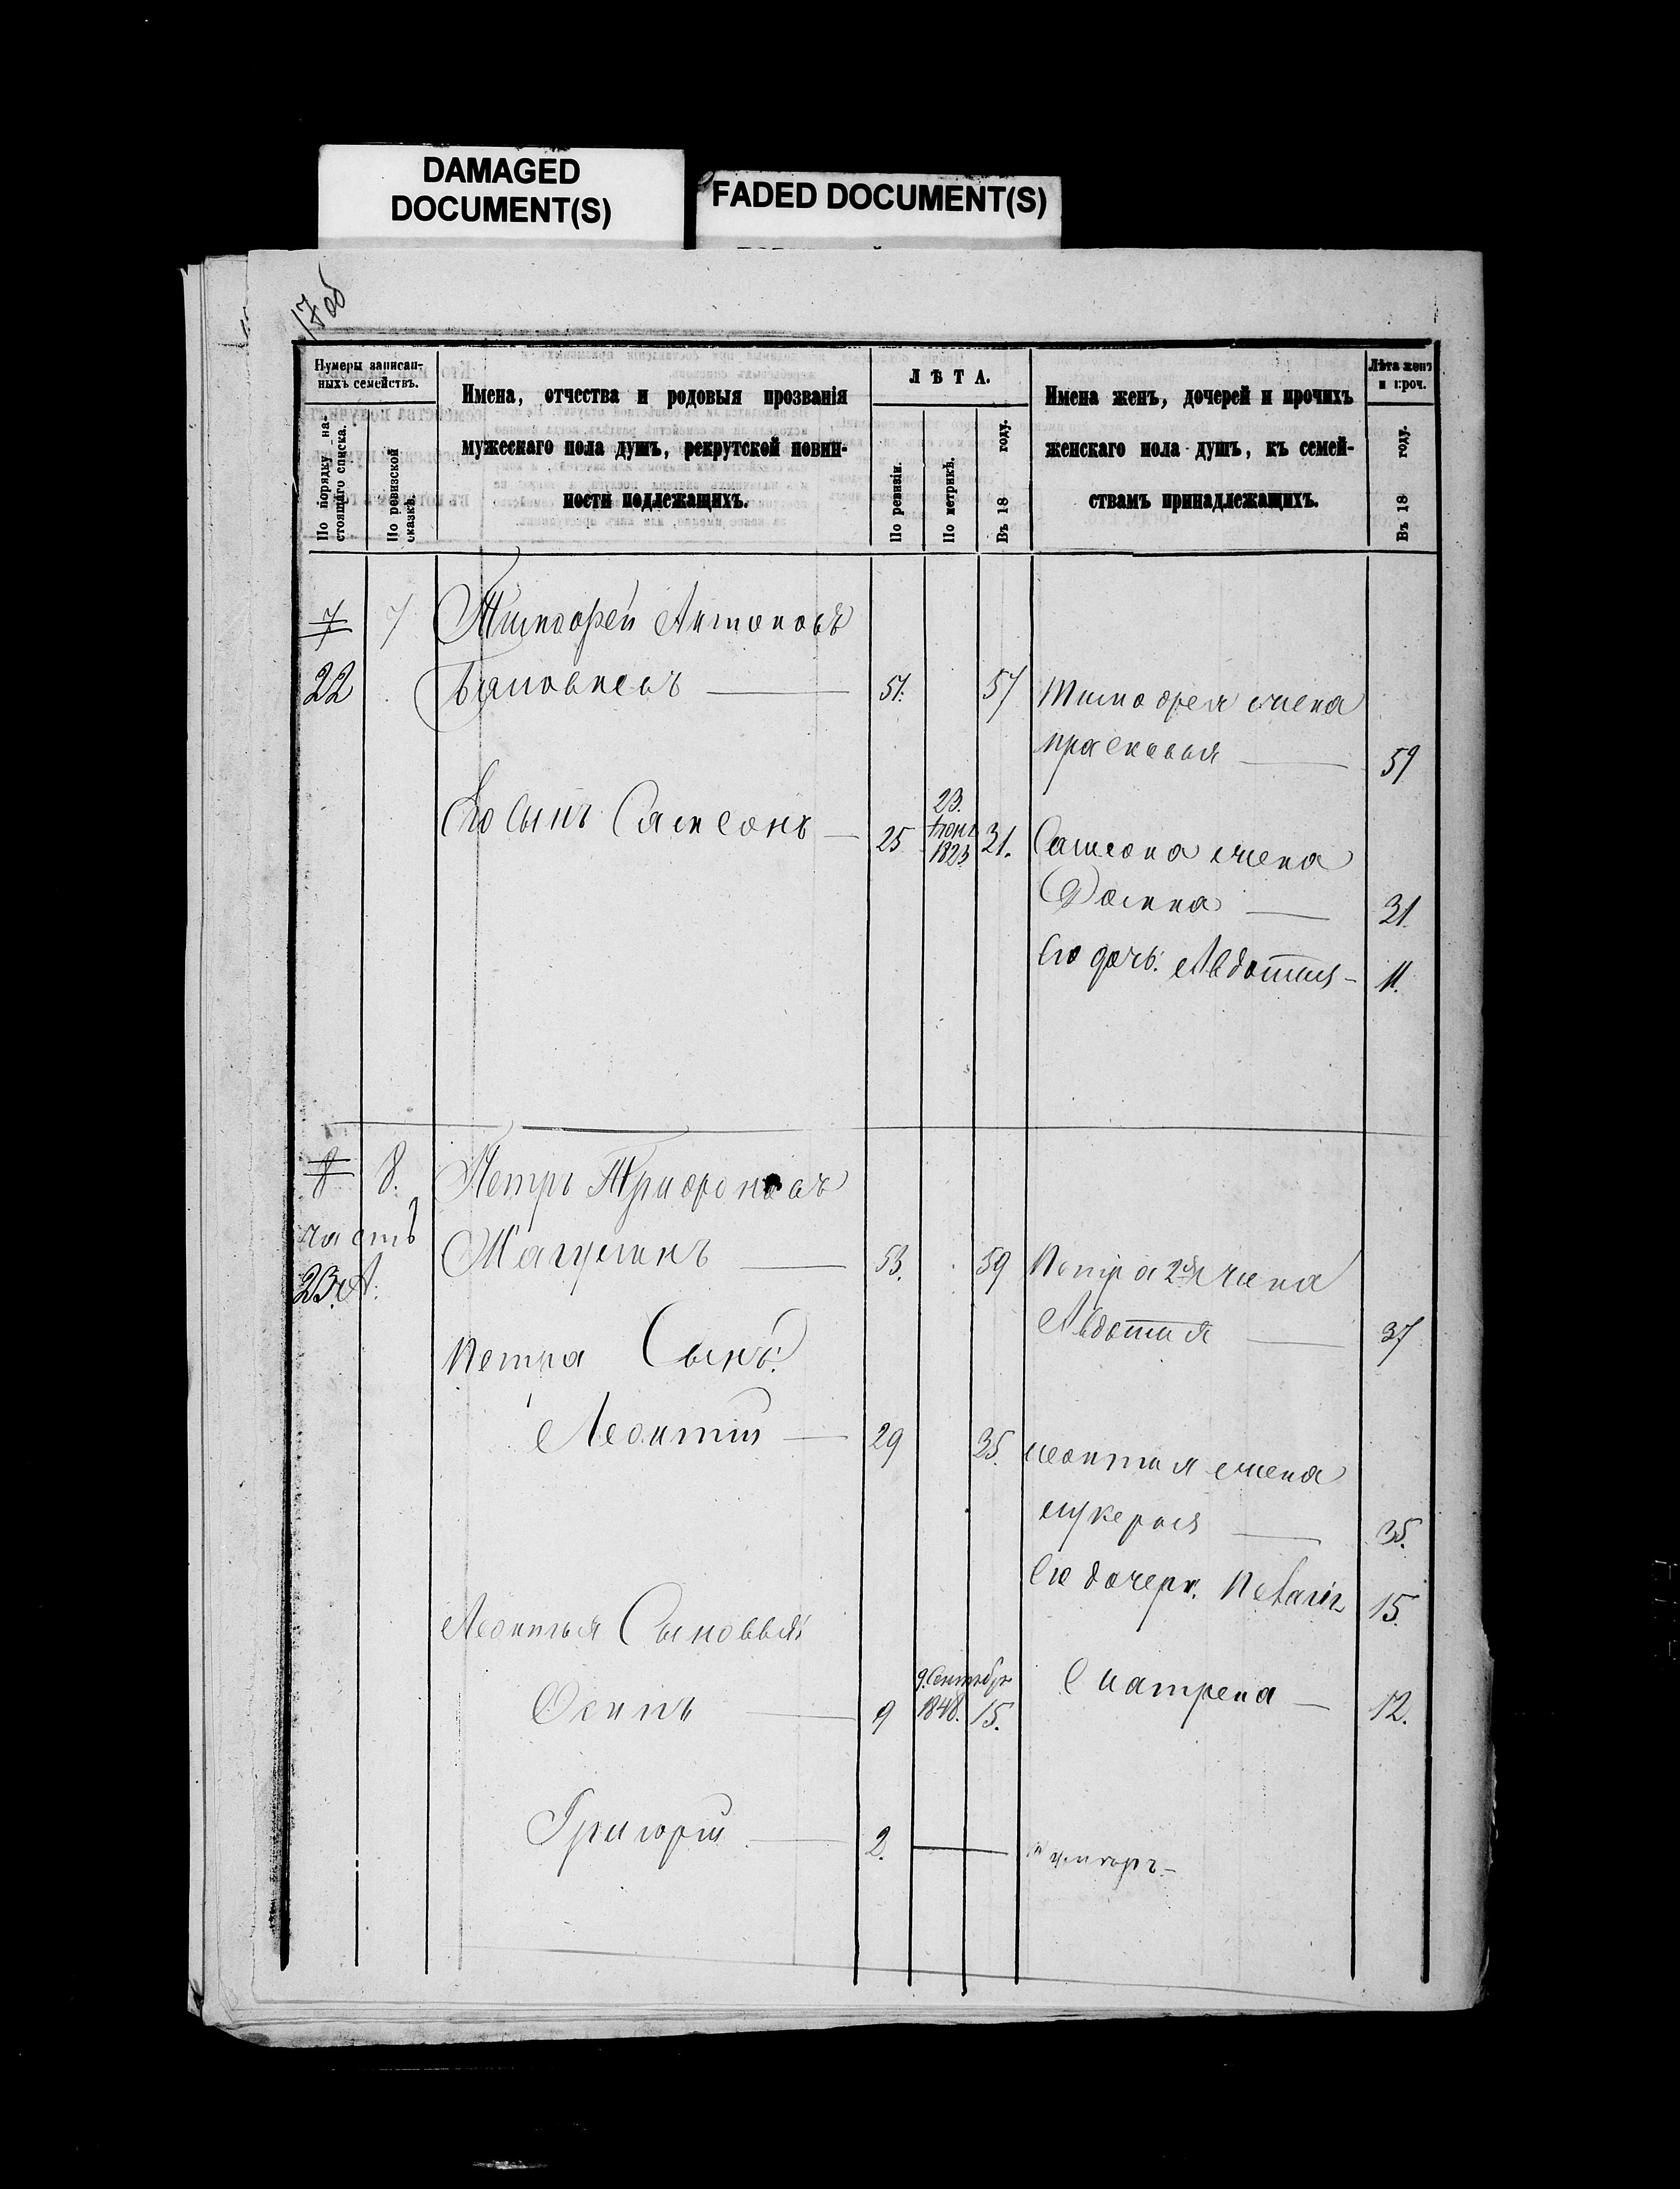 DAMAGED
DOCUMENT(S)
FADED DOCUMENT(S)
17об
Нумеры записан-
ныхъ семействъ.
По порядку на-
стоящаго списка.
По ревизской
сказкѣ.
Имена, отчества и родовыя прозванія
мужескаго пола душъ, рекрутской повин-
ности подлежащихъ.
ЛѢТА.
По ревизіи.
По метрикѣ.
Въ 18 году.
Имена женъ, дочерей и прочихъ
женскаго пола душъ, къ семей-
ствамъ принадлежащихъ.
Лѣта женъ
и проч.
Въ 18 году.
7 7 Тимофей Антоновъ
22 51. 57 Тимофея жена
Прасковья 59
Его сынъ Самсонъ 25 23. Іюня 1823 31. Самсона жена
Домна 31.
Его дочь Авдотья 11.
8 8. Петръ Трифоновъ
часть 53. 59 Петра 2я жена
23.А. Авдотья 37
Петра Сынъ
Леонтій 29 35. Леонтія жена
Лукерья 35.
Его дочери. Пелагія 15.
Леонтья Сыновья
Осипъ 9 9. Сентября 1848. 15. Матрена 12.
Григорій 2.
умеръ